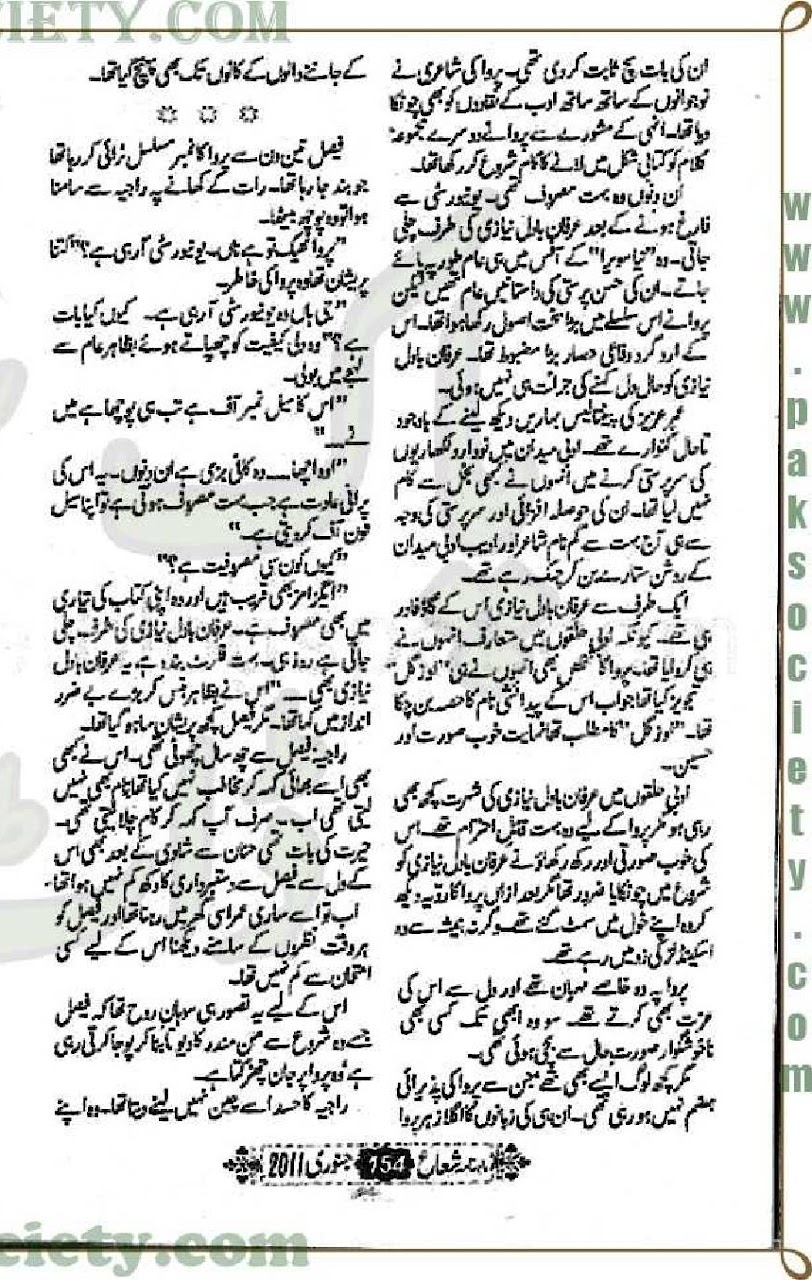 CIETY.COM
ان کی بات سچ ثابت کر دی تھی۔ پروا کی شاعری نے
نوجوانوں کے ساتھ ساتھ ادب کے نقادوں کو بھی چونکا
دیا تھا۔ انہی کے مشورے سے پروا نے دوسرے مجموعہ
کلام کو کتابی شکل میں لانے کا کام شروع کر رکھا تھا۔
ان دنوں وہ بہت مصروف تھی۔ یونیورسٹی سے
فارغ ہونے کے بعد عرفان باول نیازی کی طرف چلی
جاتی۔ وہ "نیا سویرا" کے آفس میں ہی عام طور پہ پائے
جاتے۔ ان کی حسن پرستی کی داستانیں عام تھیں لیکن
پروا نے اس سلسلے میں بڑا سخت اصول رکھا ہوا تھا۔ اس
کے ارد گرد دفاعی حصار بڑا مضبوط تھا۔ عرفان باول
نیازی کو حال دل کہنے کی جرات ہی نہیں ہوئی۔
عمر عزیز کی پینتالیس بہاریں دیکھ لینے کے باوجود
تاحال کنوارے تھے۔ ادبی میدان میں نووارد لکھاریوں
کی سرپرستی کرنے میں انہوں نے کبھی بخل سے کام
نہیں لیا تھا۔ ان کی حوصلہ افزائی اور سرپرستی کی وجہ
سے ہی آج بہت سے گم نام شاعر اور ادیب ادبی میدان
کے روشن ستارے بن کر چمک رہے تھے۔
ایک طرف سے عرفان باول نیازی اس کے گاڈ فادر
ہی تھے۔ کیونکہ ادبی حلقوں میں متعارف انہوں نے
ہی کروایا تھا۔ پروا کا تخلص بھی انہوں نے ہی "نوز گل"
تجویز کیا تھا جو اب اس کے پیدائشی نام کا حصہ بن چکا
تھا۔ "نوز گل" کا مطلب تھا نہایت خوب صورت اور
حسین۔
ادبی حلقوں میں عرفان باول نیازی کی شہرت کچھ بھی
رہی ہو مگر پروا کے لیے وہ بہت قابل احترام تھے۔ اس
کی خوب صورتی اور رکھ رکھاؤ نے عرفان باول نیازی کو
شروع میں چونکایا ضرور تھا مگر بعد ازاں پروا کا رویہ دیکھ
کر وہ اپنے خول میں سمٹ گئے تھے وگرنہ ہمیشہ سے وہ
اسکینڈلز کی زد میں رہے تھے۔
پروا پہ وہ خاصے مہربان تھے اور دل سے اس کی
عزت بھی کرتے تھے۔ سو وہ ابھی تک کسی بھی
ناخوشگوار صورت حال سے بچی ہوئی تھی۔
مگر کچھ لوگ ایسے بھی تھے جن سے پروا کی پذیرائی
ہضم نہیں ہو رہی تھی۔ ان ہی کی زبانوں کا اگلا زہر پروا
کے جاننے والوں کے کانوں تک بھی پہنچ گیا تھا۔
فیصل تین دن سے پروا کا نمبر مسلسل ٹرائی کر رہا تھا
جو بند جا رہا تھا۔ رات کے کھانے پہ راجیہ سے سامنا
ہوا تو وہ پوچھ بیٹھا۔
"پروا ٹھیک تو ہے ناں۔ یونیورسٹی آ رہی ہے؟" کتنا
پریشان تھا وہ پروا کی خاطر۔
"جی ہاں وہ یونیورسٹی آ رہی ہے۔ کیوں کیا بات
ہے؟" وہ دلی کیفیت کو چھپاتے ہوئے بظاہر عام سے
لہجے میں بولی۔
"اس کا سیل نمبر آف ہے تب ہی پوچھا ہے میں
نے۔"
"اوہ اچھا۔۔ وہ کافی بزی ہے ان دنوں۔ یہ اس کی
پرانی عادت ہے جب بہت مصروف ہوتی ہے تو اپنا سیل
فون آف کر دیتی ہے۔"
"کیوں کون سی مصروفیت ہے؟"
"ایگزامز بھی قریب ہیں اور وہ اپنی کتاب کی تیاری
میں بھی مصروف ہے۔ عرفان باول نیازی کی طرف چلی
جاتی ہے روز ہی۔ بہت فلرٹ بندہ ہے یہ عرفان باول
نیازی بھی۔" اس نے بظاہر ہنس کر بڑے بے ضرر
انداز میں کہا تھا۔ مگر فیصل کچھ پریشان سا ہو گیا تھا۔
راجیہ فیصل سے چھ سال چھوٹی تھی۔ اس نے کبھی
بھی اسے بھائی کہہ کر مخاطب نہیں کیا تھا نام بھی نہیں
لیتی تھی اب۔ صرف آپ کہہ کر کام چلا لیتی تھی۔
حیرت کی بات تھی حنان سے شادی کے بعد بھی اس
کے دل سے فیصل سے دستبرداری کا دکھ کم نہیں ہوا تھا۔
اب تو اسے ساری عمر اسی گھر میں رہنا تھا اور فیصل کو
ہر وقت نظروں کے سامنے دیکھنا اس کے لیے کسی
امتحان سے کم نہیں تھا۔
اس کے لیے یہ تصور ہی سوہان روح تھا کہ فیصل
جسے وہ شروع سے من مندر کا دیوتا بنا کر پوجا کرتی رہی
ہے وہ پروا پر جان چھڑکتا ہے۔
راجیہ کا حسد اسے چین نہیں لینے دیتا تھا۔ وہ اپنے
ماہنامہ شعاع 154 جنوری 2011
www.paksociety.com
ciety.com